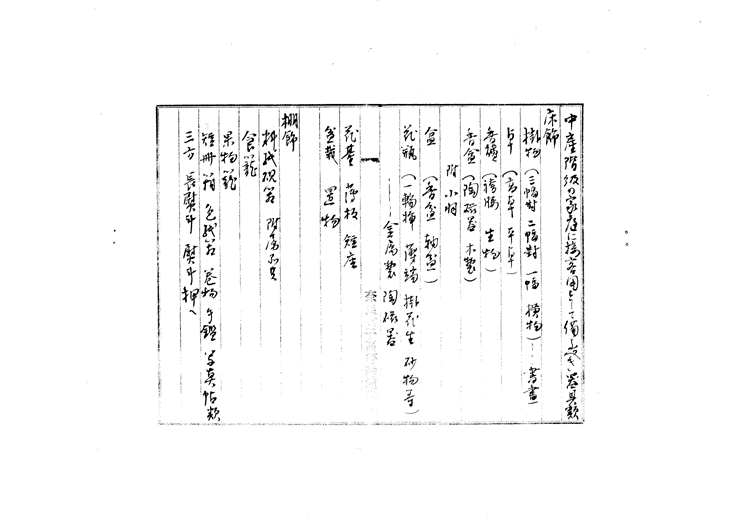 中産階級の家庭に接客用として備ふべき器具類
床飾
掛物(三幅対 二幅対 一幅 横物)—書畫
卓(高卓 平卓)
香爐( 生物)
香盒(陶磁器 木製)
附 小羽
盆(香盆 軸盆)
花瓶(一輪挿 薄端 掛花生 砂物等)
—金属製 陶磁器
花臺 薄板 短座
盆栽 置物
棚飾
料紙硯筥 附属品共
食籠
果物籠
短冊箱 色紙筥 巻物 手鑑 写真帖類
三方 長熨斗 熨斗押ヘ